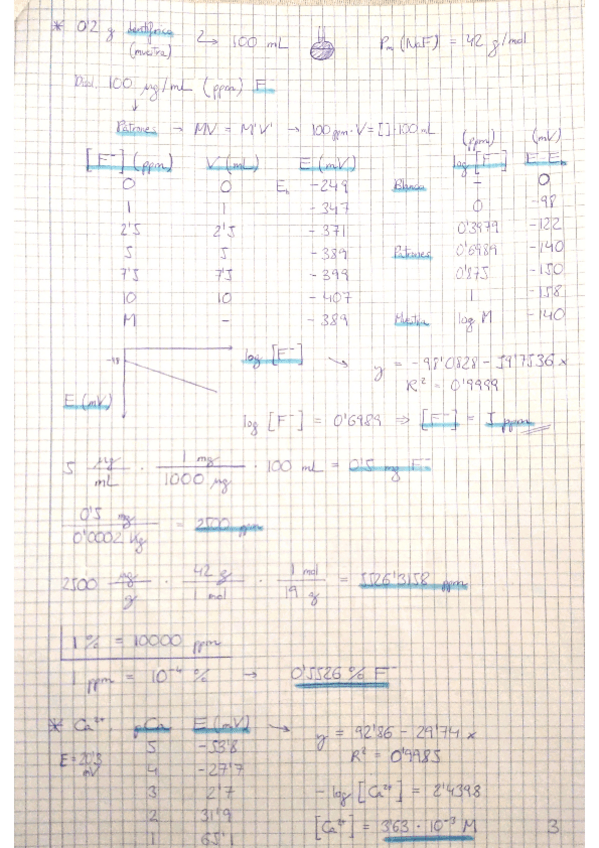 * 0'2 g dentífrico (muestra) → 100 mL Pm (NaF) = 42 g/mol
100 µg/mL (ppm) F⁻
Patrones → MV = M'V' → 100 ppm · V = [ ] · 100 mL
[F⁻] (ppm) V (mL) E (mV) (ppm) log [F⁻] (mV) E-E_b
0 0 E_b -249 Blanco - 0
1 1 -347 0 -98
2'5 2'5 -371 0'3979 -122
5 5 -389 Patrones 0'6989 -140
7'5 7'5 -399 0'875 -150
10 10 -407 1 -158
M - -389 Muestra log M -140
-98 log [F⁻] → y = -98'0828 - 59'7536 x
R² = 0'9999
E (mV)
log [F⁻] = 0'6989 ⇒ [F⁻] = 5 ppm
5 µg/mL · 1 mg/1000 µg · 100 mL = 0'5 mg F⁻
0'5 mg/0'0002 Kg = 2500 ppm
2500 µg/g · 42 g/mol · 1 mol/19 g = 5526'3158 ppm
1 % = 10000 ppm
1 ppm = 10⁻⁴ % → 0'5526 % F⁻
* Ca²⁺. pCa E (mV) → y = 92'86 - 29'74 x
E = 20'3 mV 5 -53'8 R² = 0'9985
4 -27'7
3 2'7 - log [Ca²⁺] = 2'4398
2 31'9
[Ca²⁺] = 3'63 · 10⁻³ M 3
1 65'1